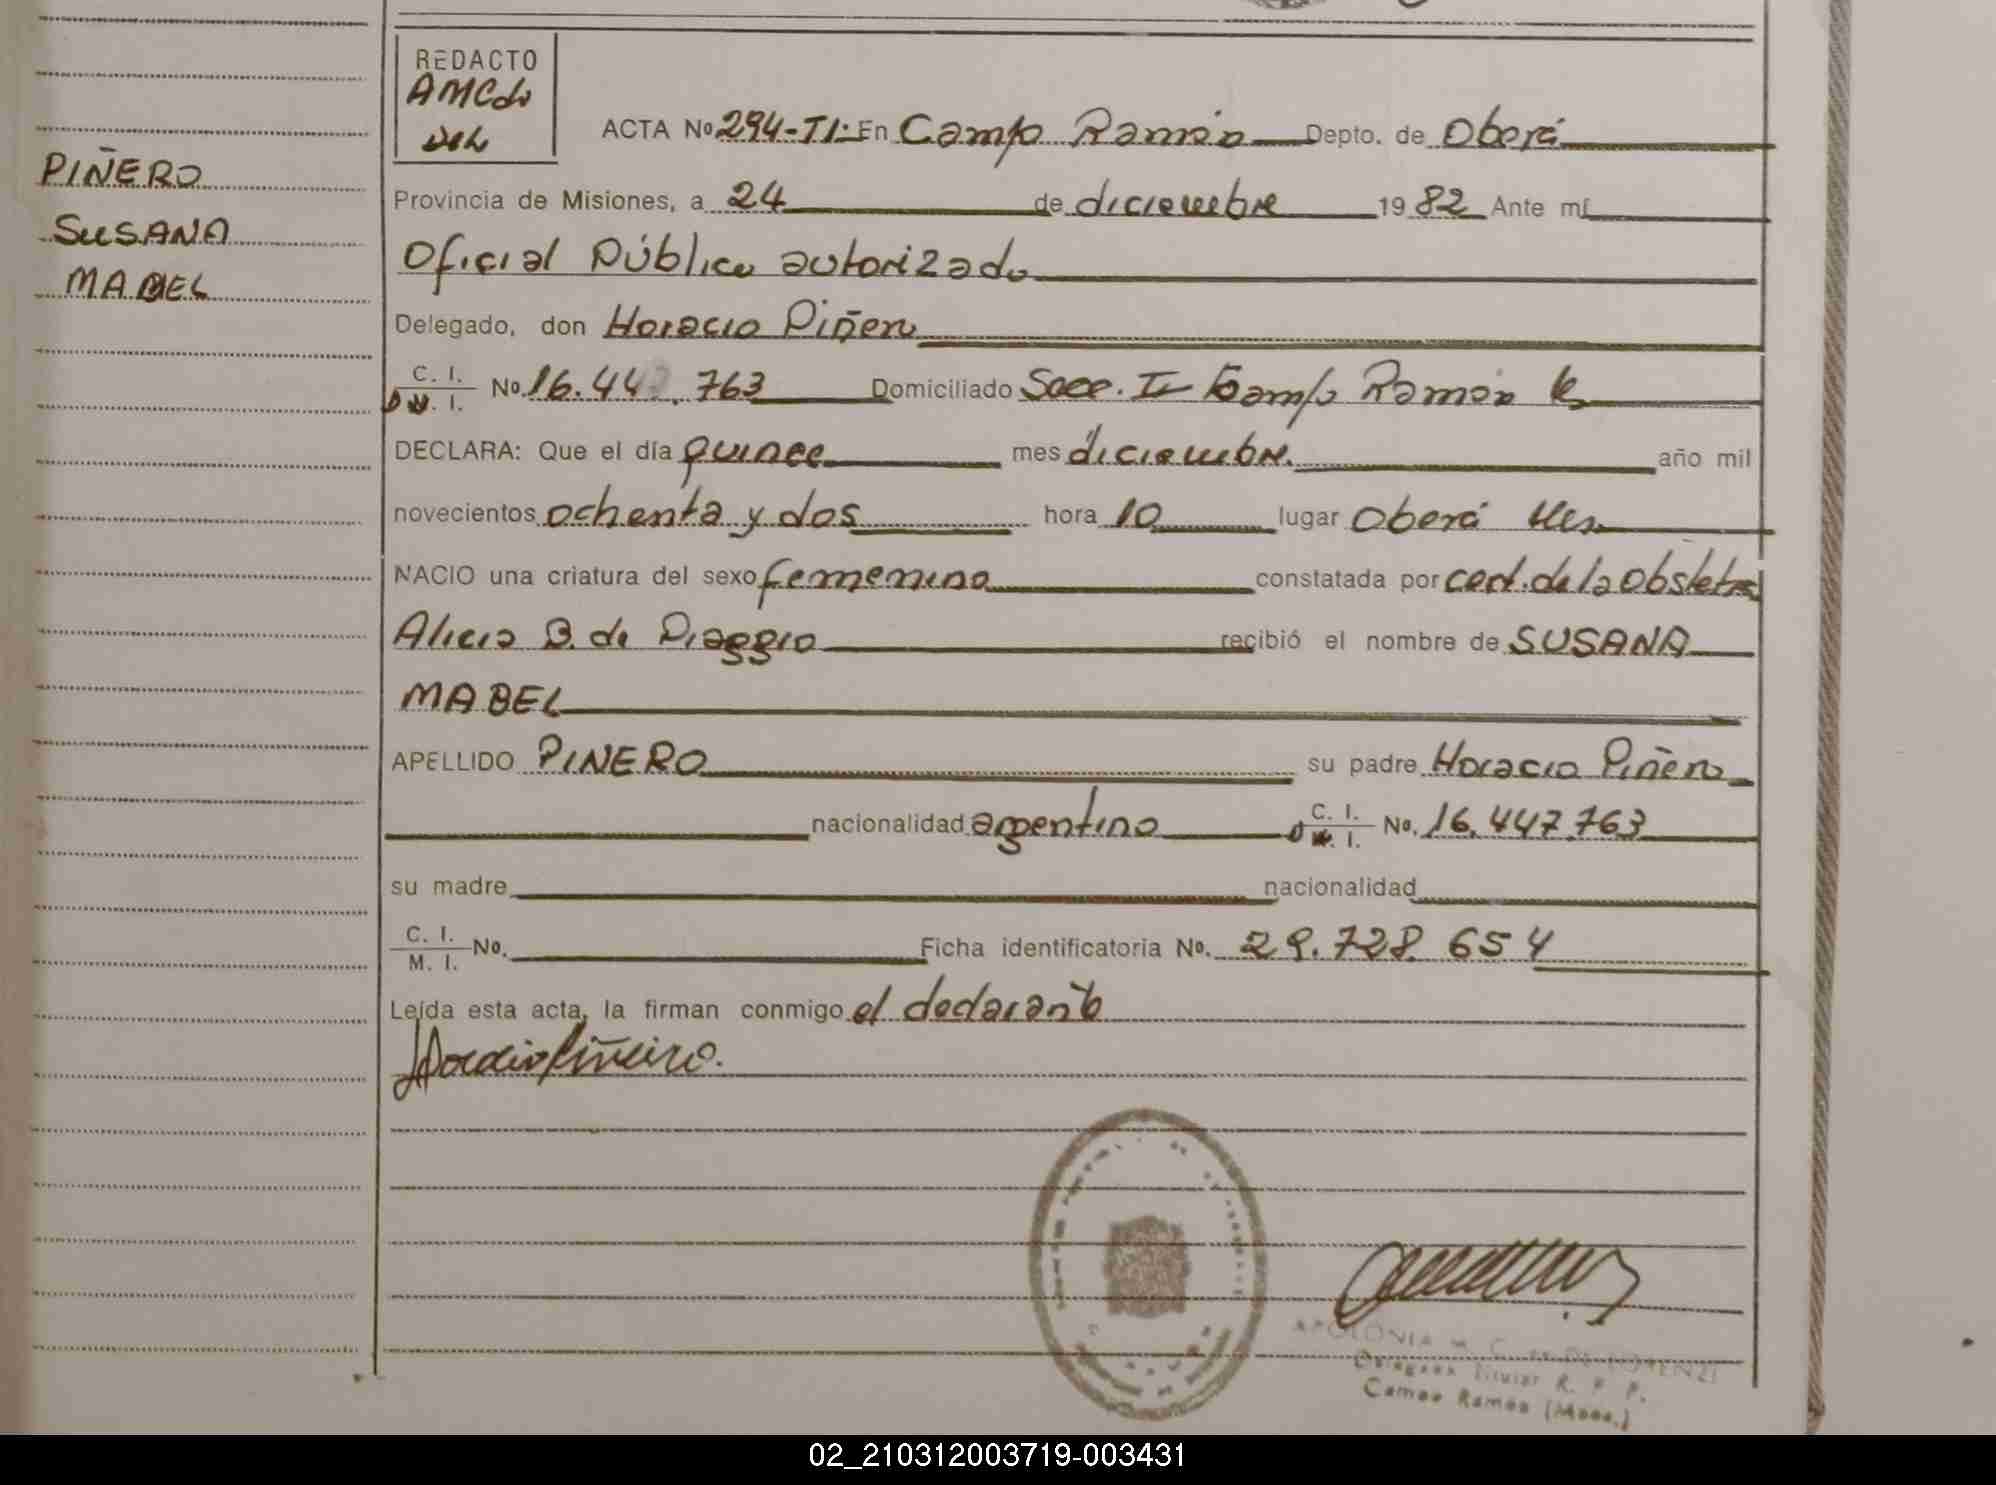 REDACTO
AMCdo
DEL
ACTA No 294-TI: En Campo Ramón Depto. de Oberá
PIÑERO
SUSANA
MABEL
Provincia de Misiones, a 24 de diciembre 1982 Ante mí
Oficial Público autorizado
Delegado, don Horacio Piñero
C. I. No. 16.447.763 Domiciliado Secc. II Campo Ramón
D I.
DECLARA: Que el día quince mes diciembre. año mil
novecientos ochenta y dos hora 10 lugar Oberá Mes.
NACIO una criatura del sexo femenino constatada por cert. de la obstetra
Alicia B. de Piaggio recibió el nombre de SUSANA
MABEL
APELLIDO PIÑERO su padre Horacio Piñero
nacionalidad argentino C. I. No. 16.447.763
D I.
su madre nacionalidad
C. I. No. Ficha identificatoria No. 29.728.654
M. I.
Leída esta acta, la firman conmigo el declarante
Horacio Piñeiro.
APOLONIA M. C. DE LORENZI
Titular R. P.
Campo Ramón (Mnes.)
02_210312003719-003431